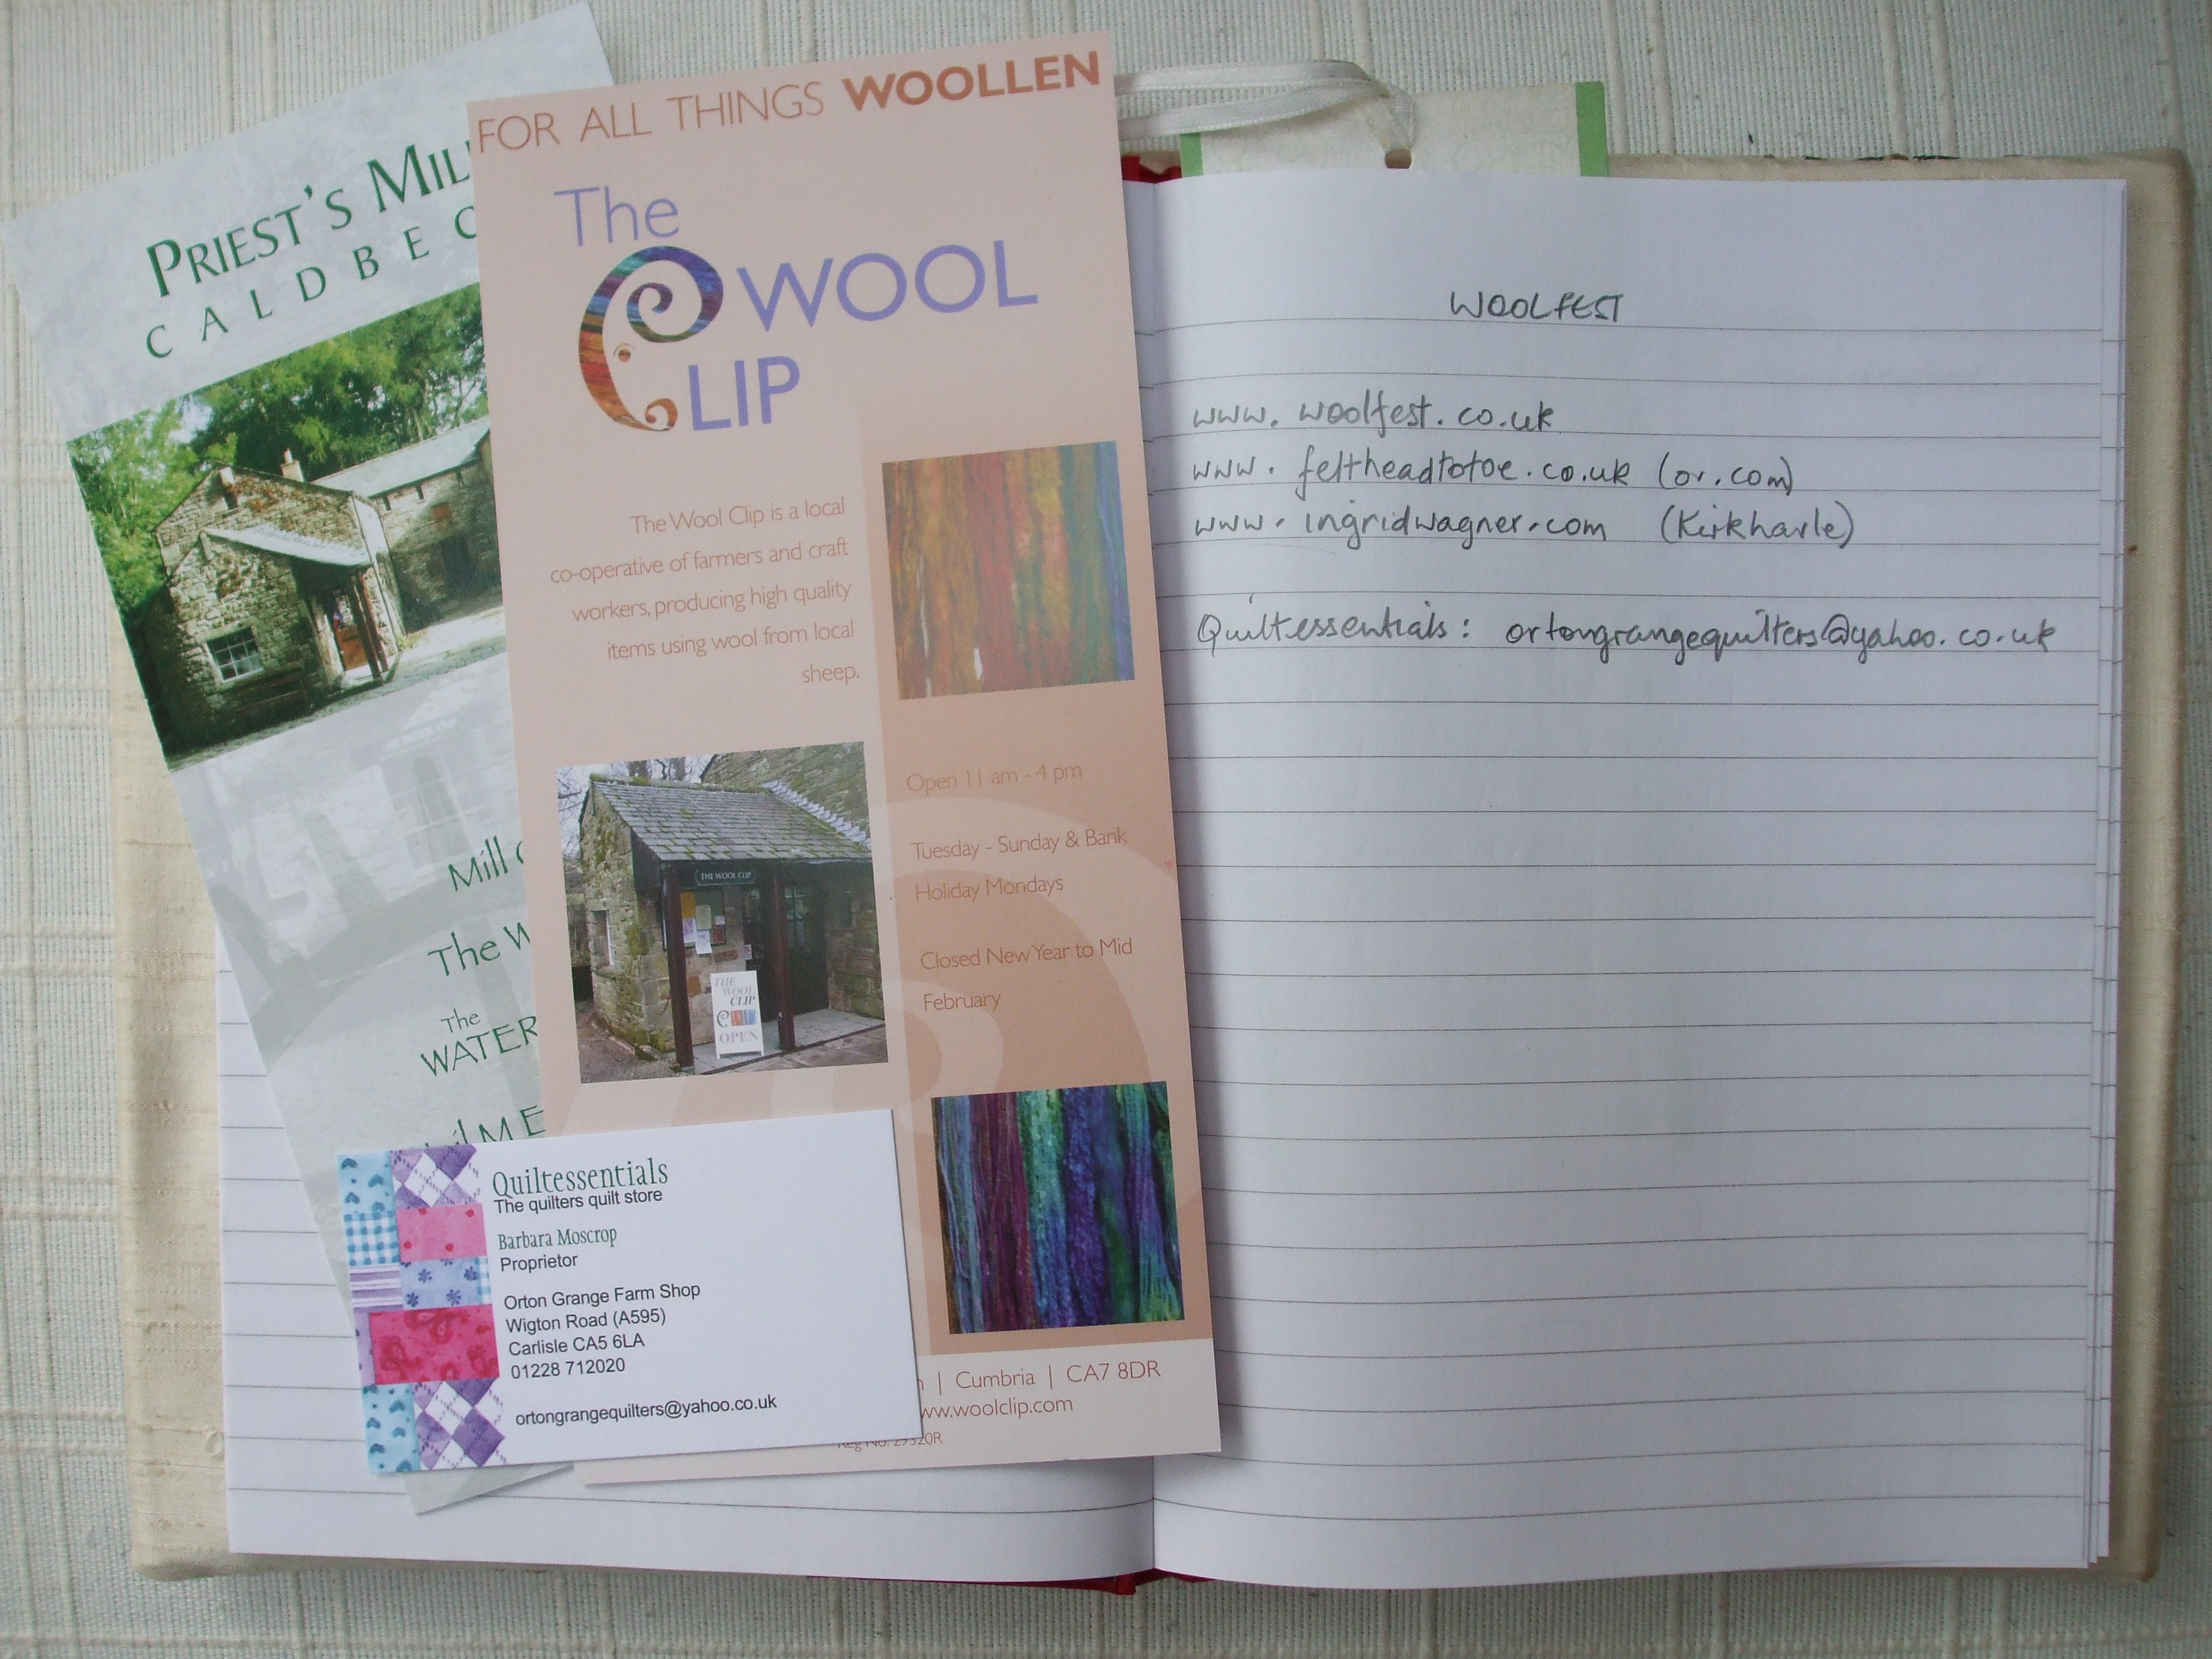 PRIEST'S
CALDBEC
Mill
The
The
WATER
FOR ALL THINGS WOOLLEN
The
WOOL
CLIP
The Wool Clip is a local
co-operative of farmers and craft
workers, producing high quality
items using wool from local
sheep.
Open 11 am - 4 pm
Tuesday - Sunday & Bank
Holiday Mondays
Closed New Year to Mid
February
THE WOOL CLIP
THE
WOOL
CLIP
OPEN
| Cumbria | CA7 8DR
www.woolclip.com
Reg No. 29320R
Quiltessentials
The quilters quilt store
Barbara Moscrop
Proprietor
Orton Grange Farm Shop
Wigton Road (A595)
Carlisle CA5 6LA
01228 712020
ortongrangequilters@yahoo.co.uk
WOOLFEST
www.woolfest.co.uk
www.feltheadtotoe.co.uk (or.com)
www.ingridwagner.com (Kirkharle)
Quiltessentials: ortongrangequilters@yahoo.co.uk